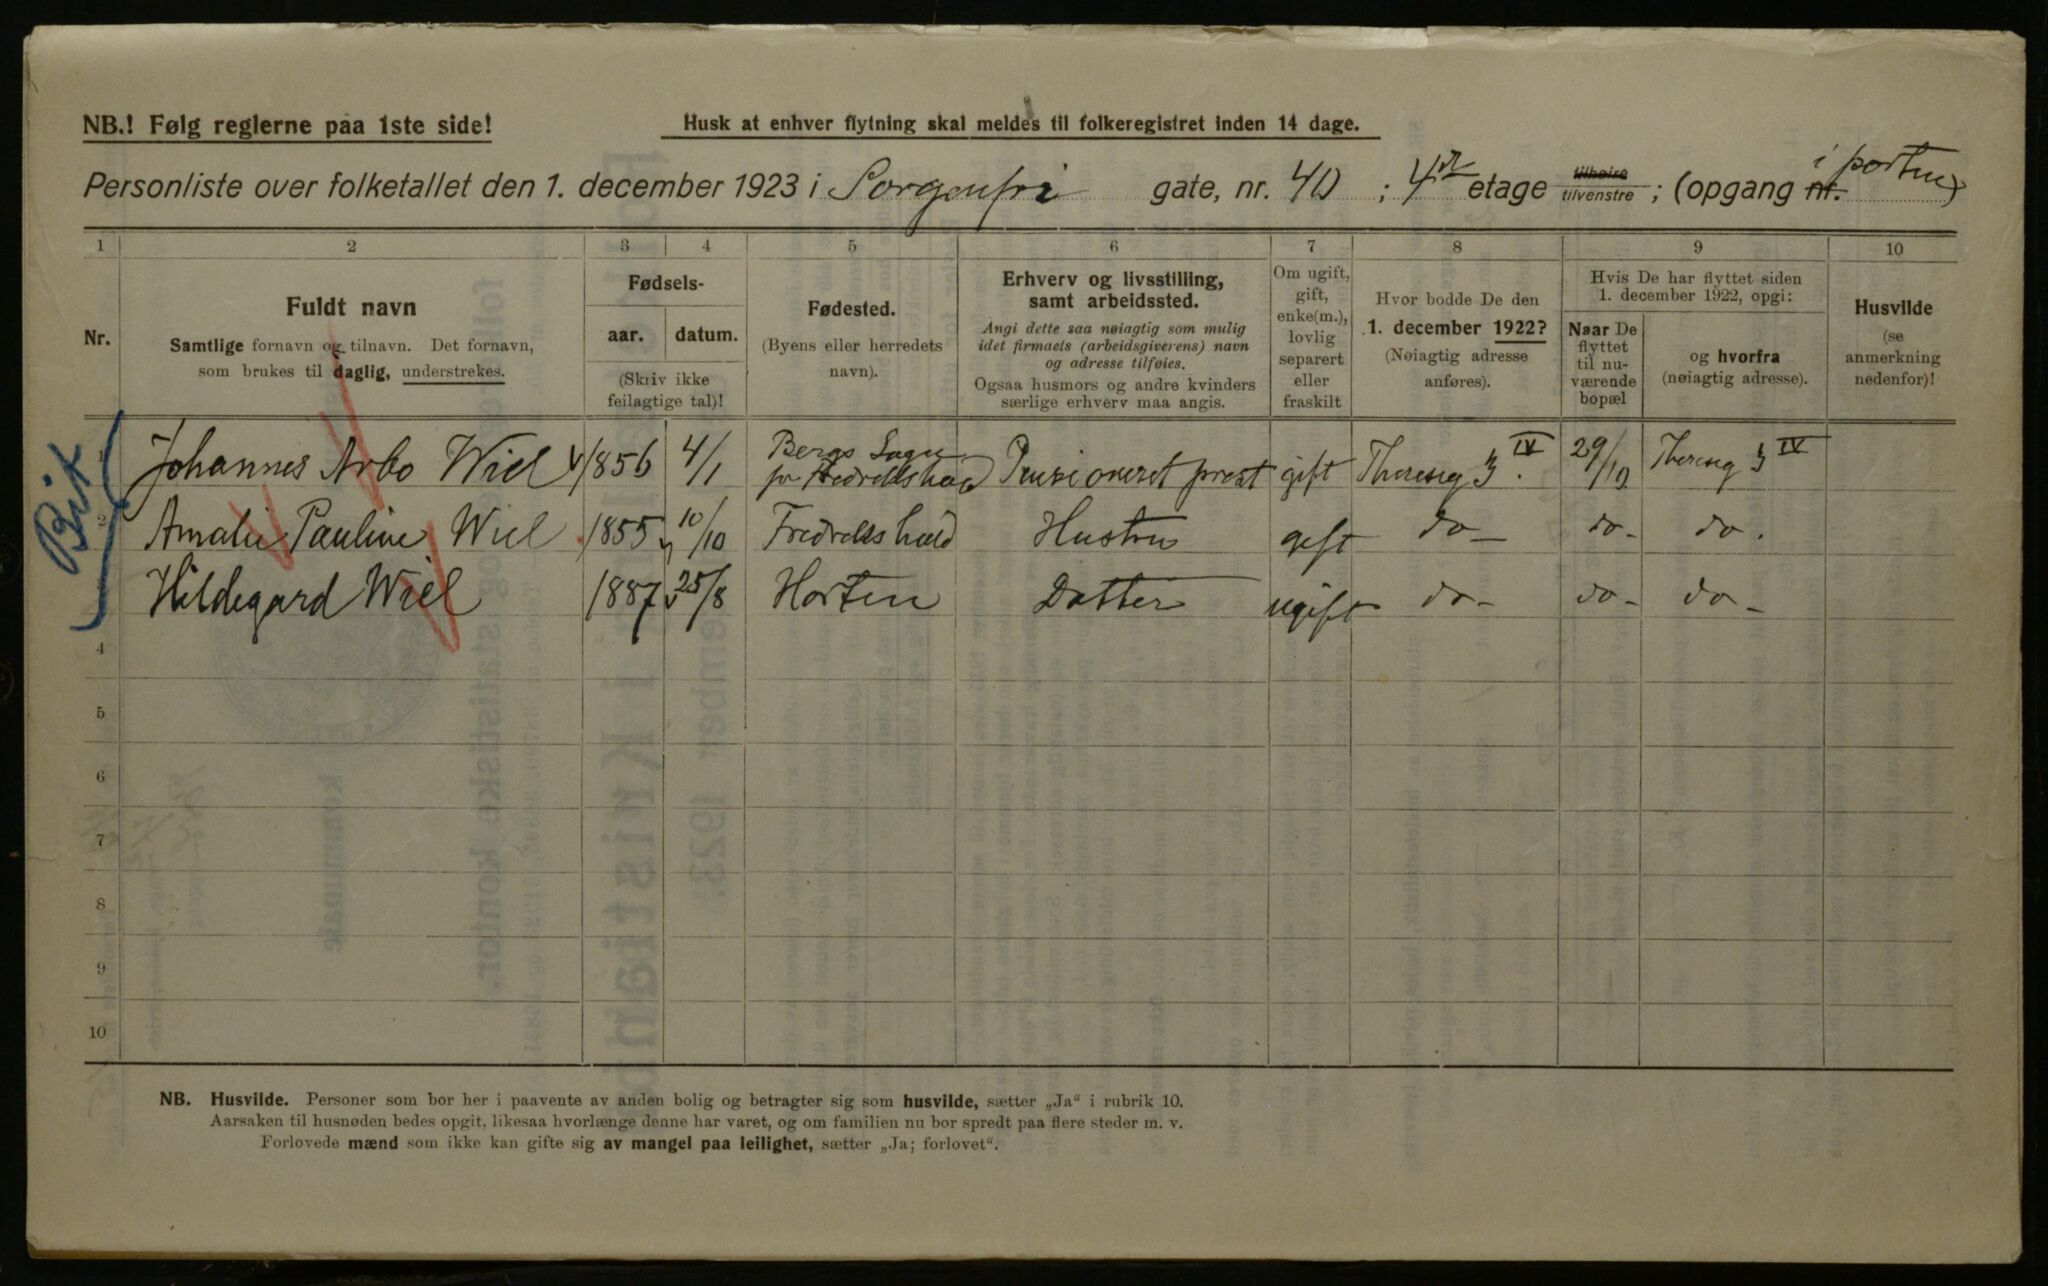 NB.! Følg reglerne paa 1ste side!
Husk at enhver flytning skal meldes til folkeregistret inden 14 dage.
Personliste over folketallet den 1. december 1923 i Sorgenfri gate, nr. 40 ; 4de etage tilhøire tilvenstre ; (opgang nr. i porten)
1 2 3 4 5 6 7 8 9 10
Nr.
Fuldt navn
Samtlige fornavn og tilnavn. Det fornavn,
som brukes til daglig, understrekes.
Fødsels-
aar. datum.
(Skriv ikke
feilagtige tal)!
Fødested.
(Byens eller herredets
navn).
Erhverv og livsstilling,
samt arbeidssted.
Angi dette saa nøiagtig som mulig
idet firmaets (arbeidsgiverens) navn
og adresse tilføies.
Ogsaa husmors og andre kvinders
særlige erhverv maa angis.
Om ugift,
gift,
enke(m.),
lovlig
separert
eller
fraskilt
Hvor bodde De den
1. december 1922?
(Nøiagtig adresse
anføres).
Hvis De har flyttet siden
1. december 1922, opgi:
Naar De
flyttet
til nu-
værende
bopæl
og hvorfra
(nøiagtig adresse).
Husvilde
(se
anmerkning
nedenfor)!
Bik
1 Johannes Arbo Wiel 1856 4/1 Bergs Sogn pr Fredrekshald Pensioneret prest gift Thereseg 3 IV. 29/10 Thereseg 3 IV
2 Amalie Pauline Wiel 1855 10/10 Fredrekshald Hustru gift do- do- do.
3 Hildegard Wiel 1887 25/8 Horten Datter ugift do- do- do-
4
5
6
7
8
9
10
NB. Husvilde. Personer som bor her i paavente av anden bolig og betragter sig som husvilde, sætter „Ja" i rubrik 10.
Aarsaken til husnøden bedes opgit, likesaa hvorlænge denne har varet, og om familien nu bor spredt paa flere steder m. v.
Forlovede mænd som ikke kan gifte sig av mangel paa leilighet, sætter „Ja; forlovet".